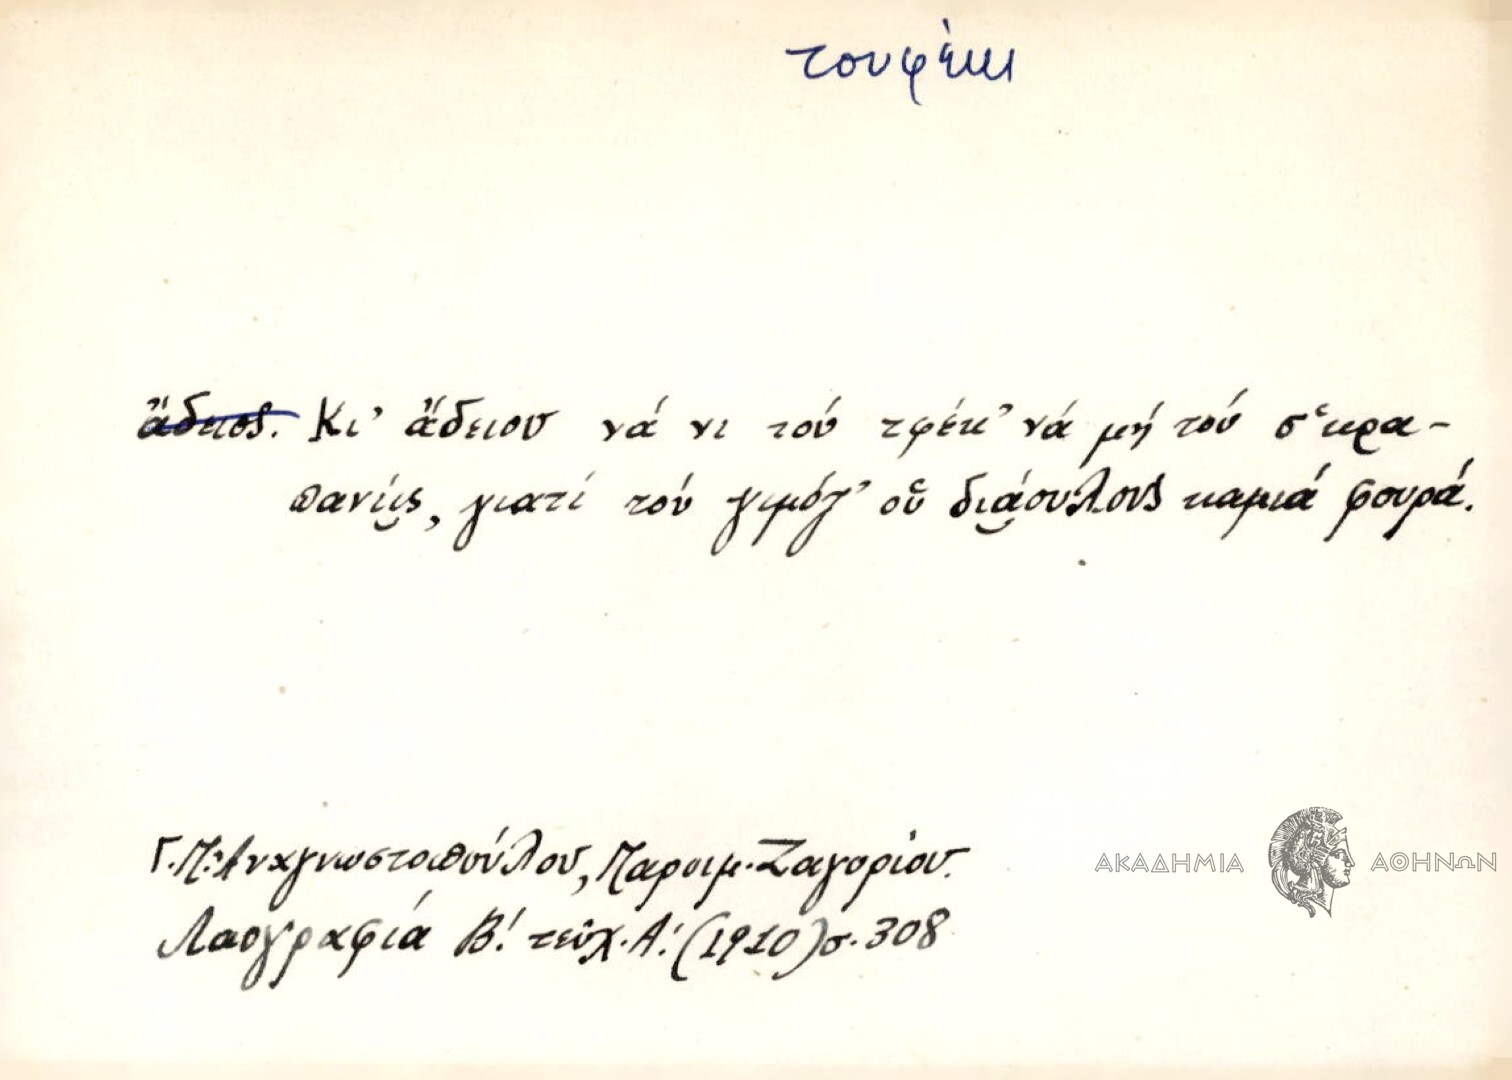 τουφέκι
ἄδειος. Κι' ἄδειου νά νι τού τφέκ' νά μή τού σ'κρα-
πανίῃς, γιατί τού γιμόζ' οὗ διάουλους καμιά φουρά.
Γ.Π. Ἀναγνωστοπούλου, Παροιμ. Ζαγορίου.
Λαογραφία Β! τεῦχ. Α! (1910) σ. 308
ΑΚΑΔΗΜΙΑ ΑΘΗΝΩΝ